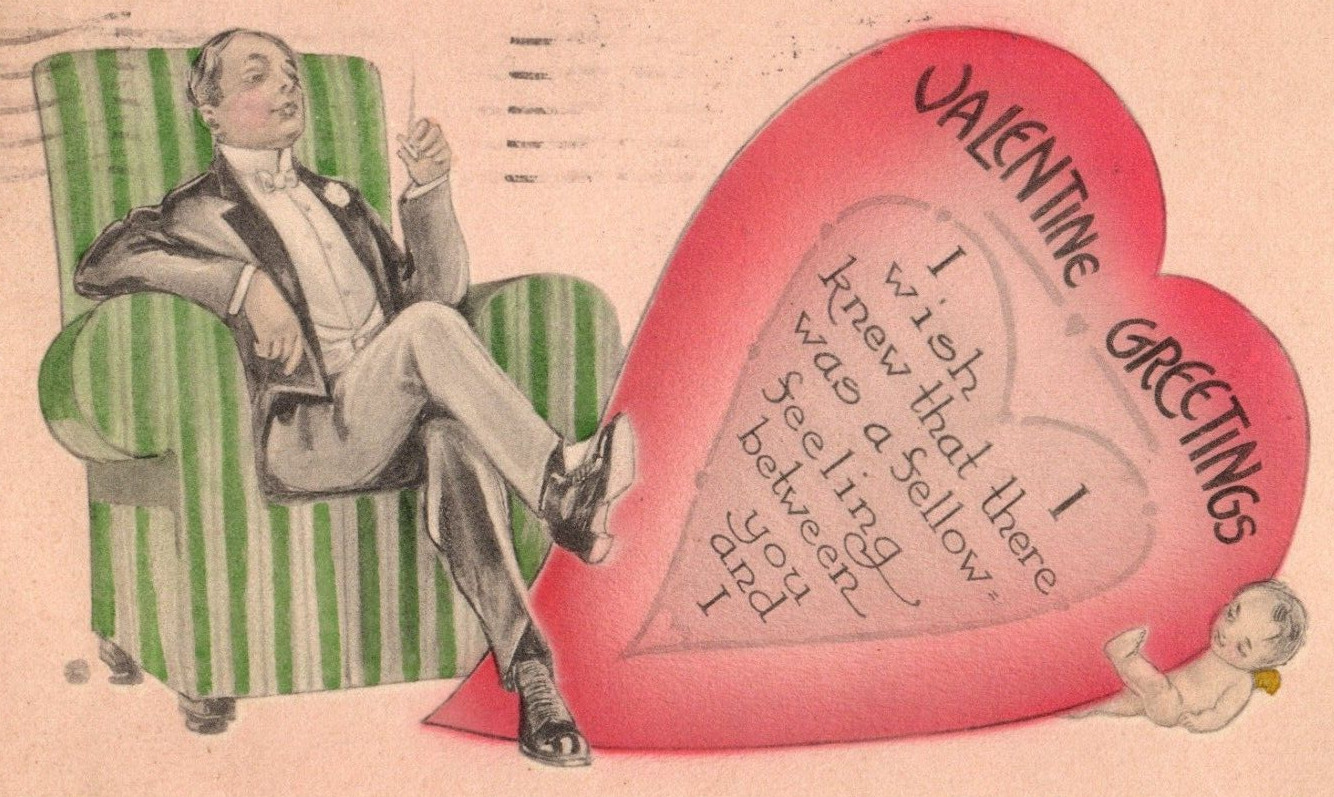 VALENTINE GREETINGS
I
wish I
knew that there
was a fellow=
feeling
between
you
and
I